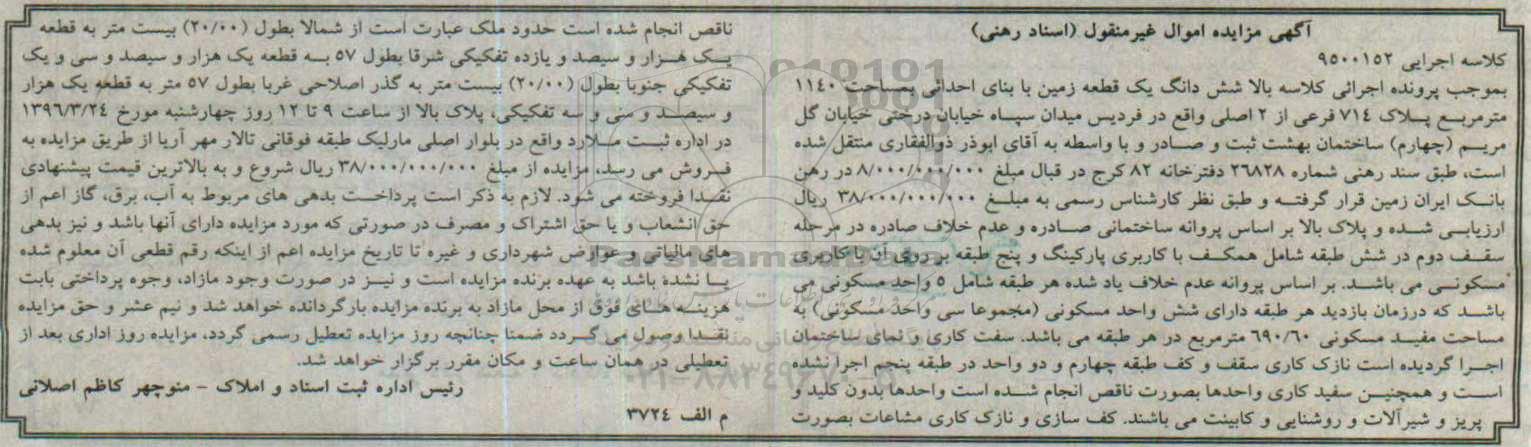 آگهی مزایده اموال غیرمنقول (اسناد رهنی)
کلاسه اجرایی ۹۵۰۰۱۵۲
بموجب پرونده اجرائی کلاسه بالا شش دانگ یک قطعه زمین با بنای احداثی بمساحت ۱۱۴۰
مترمربع پلاک ۷۱۴ فرعی از ۲ اصلی واقع در فردیس میدان سپاه خیابان درختی خیابان گل
مریم (چهارم) ساختمان بهشت ثبت و صادر و با واسطه به آقای ابوذر ذوالفقاری منتقل شده
است، طبق سند رهنی شماره ۲۶۸۲۸ دفترخانه ۸۲ کرج در قبال مبلغ ۸/۰۰۰/۰۰۰/۰۰۰ در رهن
بانک ایران زمین قرار گرفته و طبق نظر کارشناس رسمی به مبلغ ۳۸/۰۰۰/۰۰۰/۰۰۰ ریال
ارزیابی شده و پلاک بالا بر اساس پروانه ساختمانی صادره و عدم خلاف صادره در مرحله
سقف دوم در شش طبقه شامل همکف با کاربری پارکینگ و پنج طبقه بر روی آن با کاربری
مسکونی می باشد. بر اساس پروانه عدم خلاف یاد شده هر طبقه شامل ۵ واحد مسکونی می
باشد که درزمان بازدید هر طبقه دارای شش واحد مسکونی (مجموعا سی واحد مسکونی) به
مساحت مفید مسکونی ۶۹۰/۶۰ مترمربع در هر طبقه می باشد. سفت کاری و نمای ساختمان
اجرا گردیده است نازک کاری سقف و کف طبقه چهارم و دو واحد در طبقه پنجم اجرا نشده
است و همچنین سفید کاری واحدها بصورت ناقص انجام شده است واحدها بدون کلید و
پریز و شیرآلات و روشنایی و کابینت می باشند. کف سازی و نازک کاری مشاعات بصورت
ناقص انجام شده است حدود ملک عبارت است از شمالا بطول (۲۰/۰۰) بیست متر به قطعه
یک هزار و سیصد و یازده تفکیکی شرقا بطول ۵۷ به قطعه یک هزار و سیصد و سی و یک
تفکیکی جنوبا بطول (۲۰/۰۰) بیست متر به گذر اصلاحی غربا بطول ۵۷ متر به قطعه یک هزار
و سیصد و سی و سه تفکیکی، پلاک بالا از ساعت ۹ تا ۱۲ روز چهارشنبه مورخ ۱۳۹۶/۳/۲۴
در اداره ثبت ملارد واقع در بلوار اصلی مارلیک طبقه فوقانی تالار مهر آریا از طریق مزایده به
فروش می رسد، مزایده از مبلغ ۳۸/۰۰۰/۰۰۰/۰۰۰ ریال شروع و به بالاترین قیمت پیشنهادی
نقدا فروخته می شود. لازم به ذکر است پرداخت بدهی های مربوط به آب، برق، گاز اعم از
حق انشعاب و یا حق اشتراک و مصرف در صورتی که مورد مزایده دارای آنها باشد و نیز بدهی
های مالیاتی و عوارض شهرداری و غیره تا تاریخ مزایده اعم از اینکه رقم قطعی آن معلوم شده
یا نشده باشد به عهده برنده مزایده است و نیز در صورت وجود مازاد، وجوه پرداختی بابت
هزینه های فوق از محل مازاد به برنده مزایده بازگردانده خواهد شد و نیم عشر و حق مزایده
نقدا وصول می گردد ضمنا چنانچه روز مزایده تعطیل رسمی گردد، مزایده روز اداری بعد از
تعطیلی در همان ساعت و مکان مقرر برگزار خواهد شد.
رئیس اداره ثبت اسناد و املاک - منوچهر کاظم اصلانی
م الف ۳۷۲۴
ParsNamadData